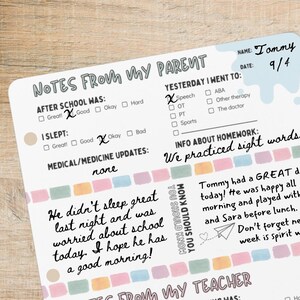 NOTES FROM MY PARENT
NAME: Tommy
DATE: 9/4
AFTER SCHOOL WAS:
Great X Good Okay Hard
I SLEPT:
Great Good X Okay Bad
MEDICAL/MEDICINE UPDATES:
none
YESTERDAY I WENT TO:
X Speech ABA
OT Other therapy
PT The doctor
Sports
INFO ABOUT HOMEWORK:
We practiced sight words
He didn't sleep great
last night and was
worried about school
today. I hope he has
a good morning!
YOU SHOULD KNOW
Tommy had a GREAT d
today! He was happy all
morning and played with
and Sara before lunch.
Don't forget ne
week is spirit w
NOTES FROM MY TEACHER